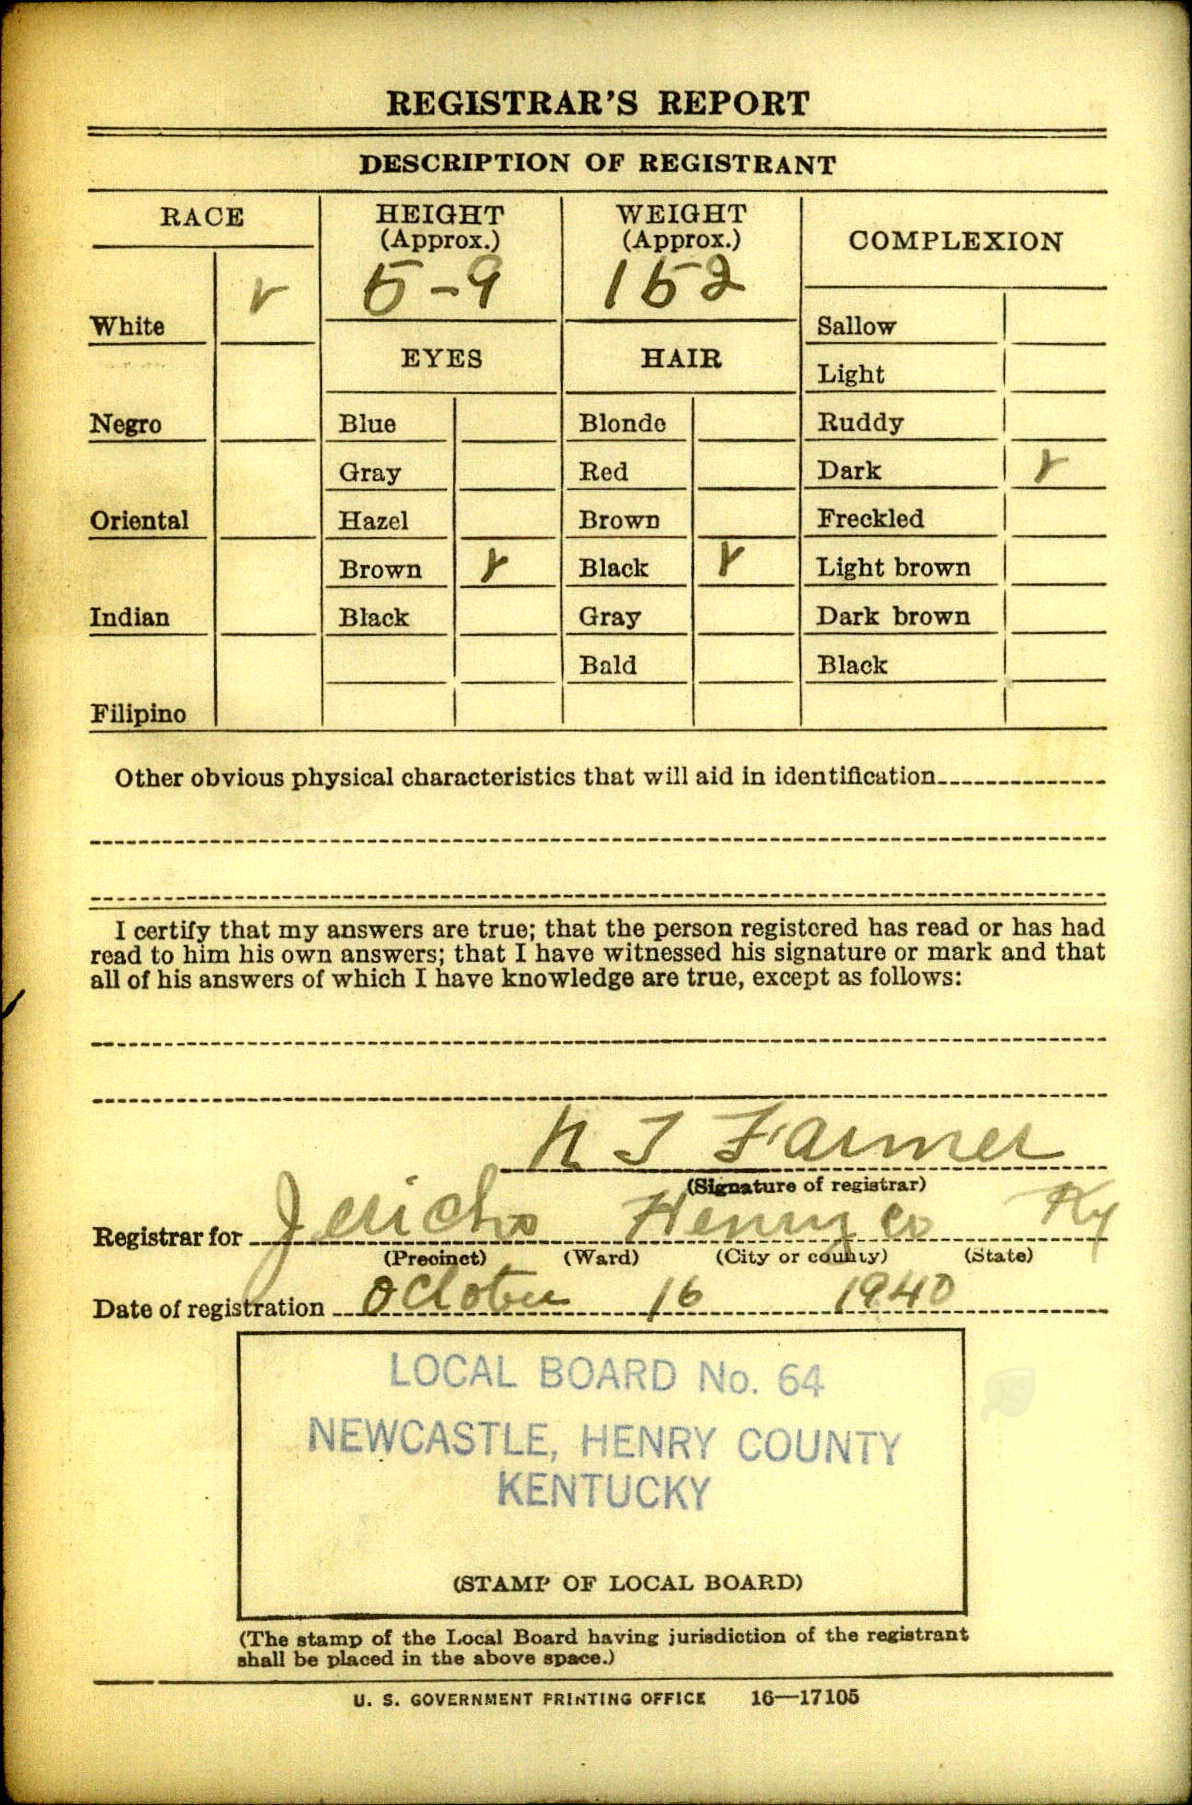 REGISTRAR'S REPORT
DESCRIPTION OF REGISTRANT
RACE
HEIGHT
(Approx.)
5-9
WEIGHT
(Approx.)
152
COMPLEXION
White
Negro
Oriental
Indian
Filipino
EYES
Blue
Gray
Hazel
Brown
Black
HAIR
Blonde
Red
Brown
Black
Gray
Bald
Sallow
Light
Ruddy
Dark
Freckled
Light brown
Dark brown
Black
Other obvious physical characteristics that will aid in identification
I certify that my answers are true; that the person registered has read or has had
read to him his own answers; that I have witnessed his signature or mark and that
all of his answers of which I have knowledge are true, except as follows:
Farmer
(Signature of registrar)
Registrar for Jericho Henry co Ky
(Precinct) (Ward) (City or county) (State)
Date of registration October 16 1940
LOCAL BOARD No. 64
NEWCASTLE, HENRY COUNTY
KENTUCKY
(STAMP OF LOCAL BOARD)
(The stamp of the Local Board having jurisdiction of the registrant
shall be placed in the above space.)
U. S. GOVERNMENT PRINTING OFFICE 16—17105